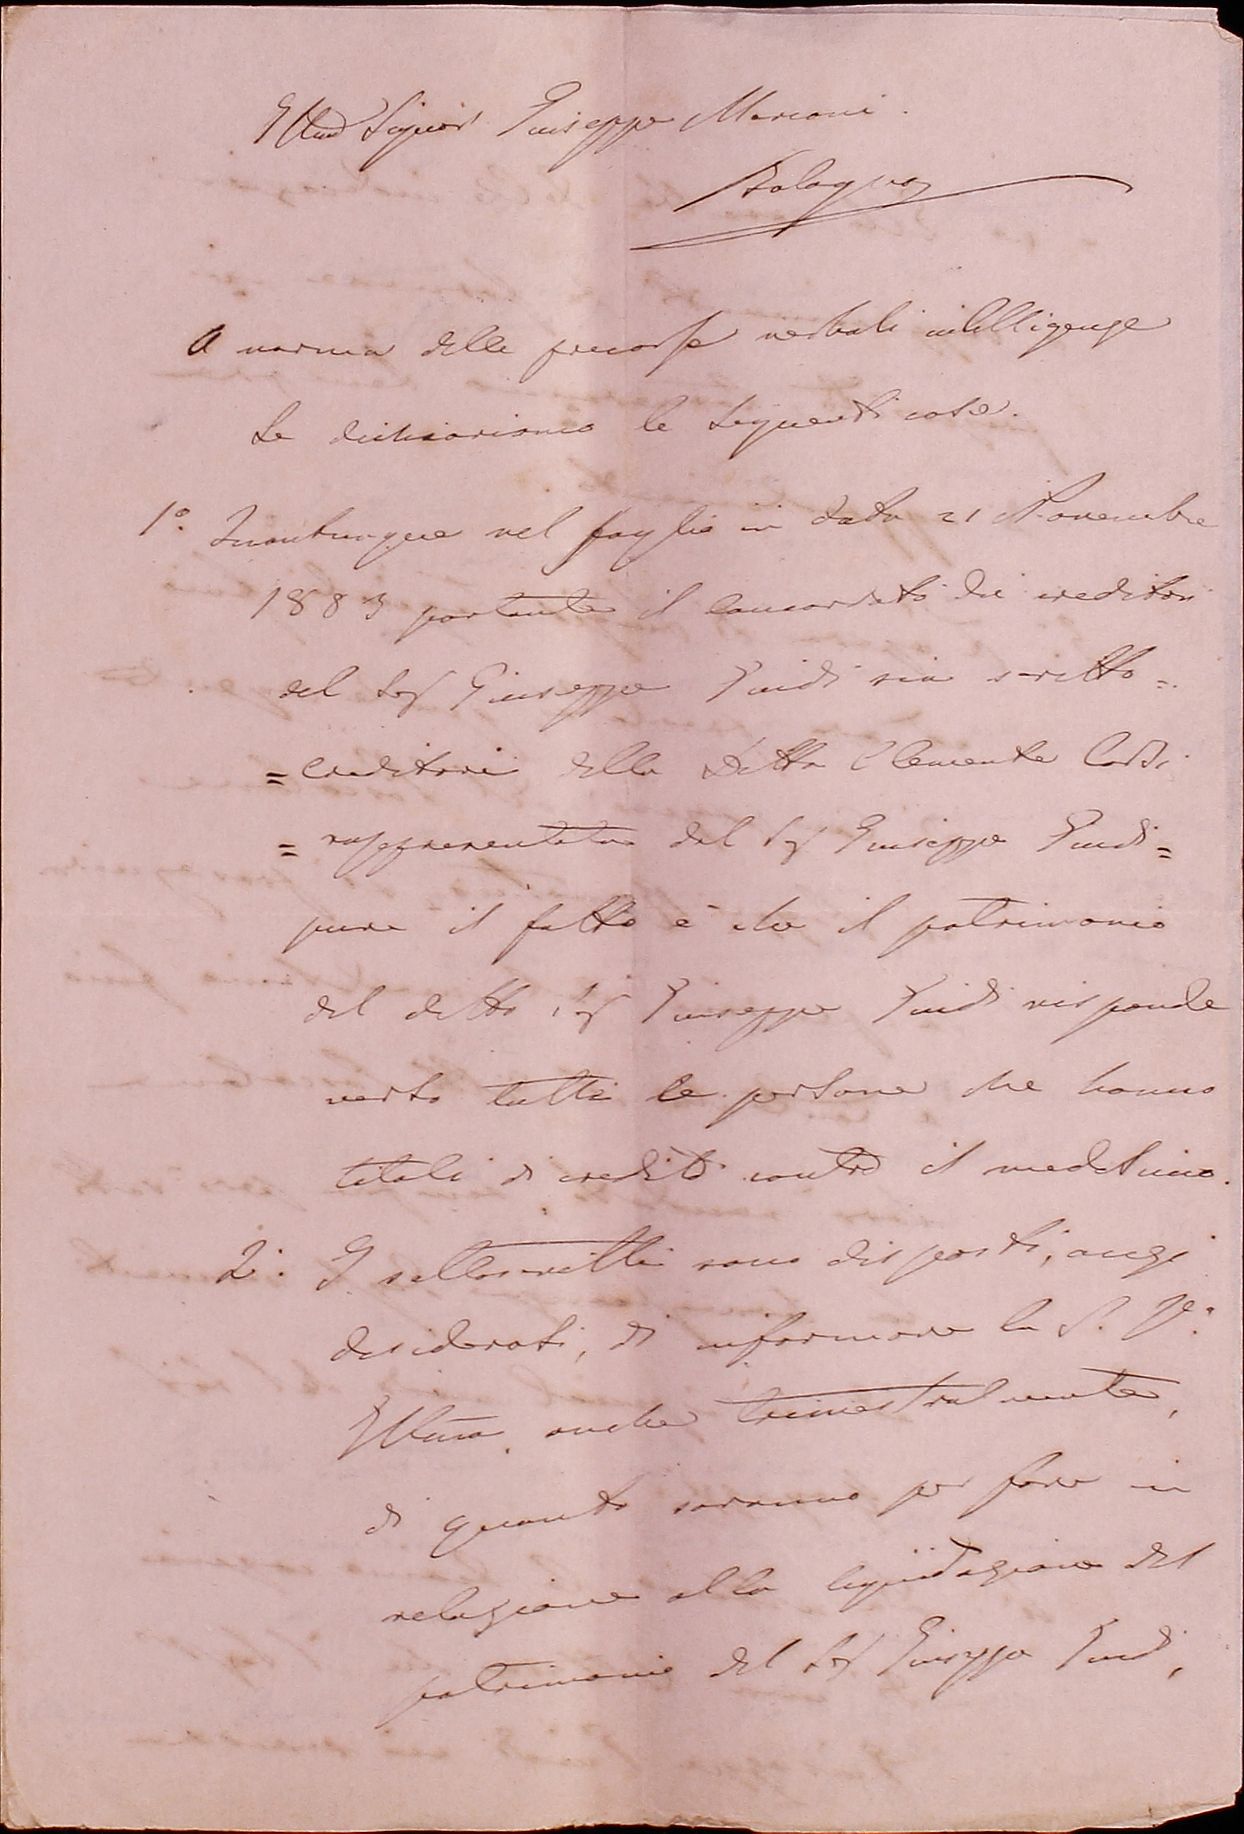 Illmo Signor Giuseppe Marconi.
Bologna
A norma delle precorse verbali intelligenze
Le dichiariamo le seguenti cose.
1.° Quantunque nel foglio in data 21 Novembre
1883 portante il concordato dei creditori
del Sig Giuseppe Guidi sia scritto =
= creditori della Ditta Clemente
= rappresentata dal Sig Giuseppe Guidi =
pure il fatto è che il patrimonio
del detto Sig Giuseppe Guidi risponde
verso tutte le persone che hanno
titoli di credito contro il medesimo.
2.° I sottoscritti sono disposti, anzi
desiderosi, di informare la S. V.
Illma. anche trimestralmente,
di quanto saranno per fare in
relazione alla liquidazione del
patrimonio del Sig Giuseppe Guidi,